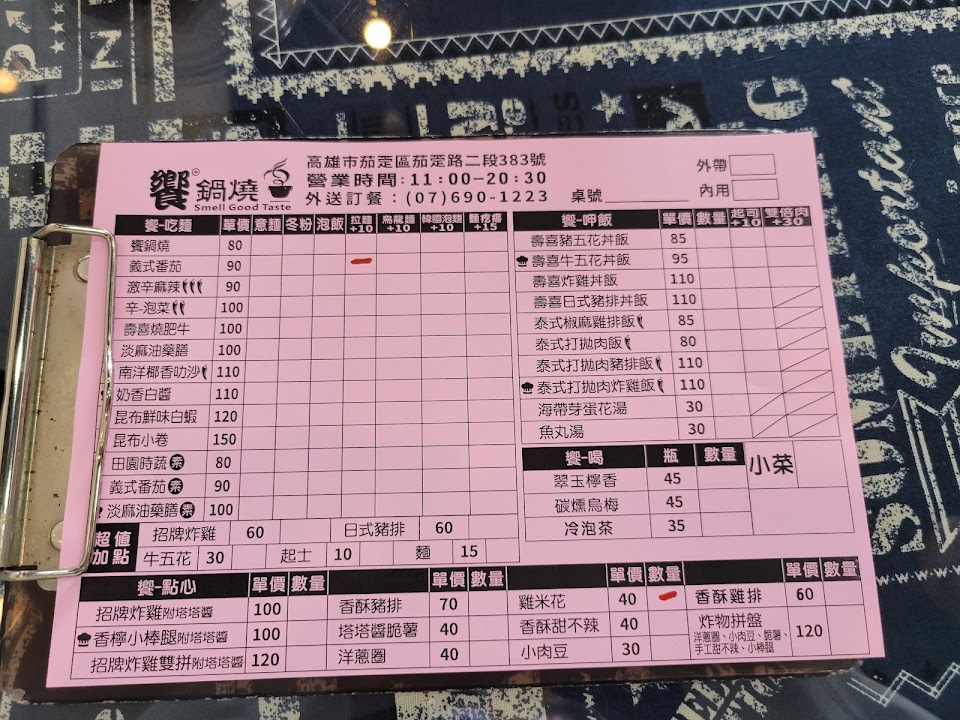 饗鍋燒
Smell Good Taste
高雄市茄萣區茄萣路二段383號
營業時間:11:00-20:30
外送訂餐:(07)690-1223
桌號
外帶
內用
饗-吃麵 單價 意麵 冬粉 泡飯 拉麵+10 烏龍麵+10 韓國泡麵+10 麵疙瘩+15
饗鍋燒 80
義式番茄 90
激辛麻辣 90
辛-泡菜 100
壽喜燒肥牛 100
淡麻油藥膳 100
南洋椰香叻沙 110
奶香白醬 110
昆布鮮味白蝦 120
昆布小卷 150
田園時蔬素 80
義式番茄素 90
淡麻油藥膳素 100
超值加點
招牌炸雞 60 日式豬排 60
牛五花 30 起士 10 麵 15
饗-呷飯 單價 數量 起司+10 雙倍肉+30
壽喜豬五花丼飯 85
壽喜牛五花丼飯 95
壽喜炸雞丼飯 110
壽喜日式豬排丼飯 110
泰式椒麻雞排飯 85
泰式打拋肉飯 80
泰式打拋肉豬排飯 110
泰式打拋肉炸雞飯 110
海帶芽蛋花湯 30
魚丸湯 30
饗-喝 瓶 數量 小菜
翠玉檸香 45
碳燻烏梅 45
冷泡茶 35
饗-點心 單價 數量 單價 數量 單價 數量 單價 數量
招牌炸雞附塔塔醬 100 香酥豬排 70 雞米花 40 香酥雞排 60
香檸小棒腿附塔塔醬 100 塔塔醬脆薯 40 香酥甜不辣 40 炸物拼盤 120
洋蔥圈、小肉豆、脆薯、
手工甜不辣、小棒腿
招牌炸雞雙拼附塔塔醬 120 洋蔥圈 40 小肉豆 30
Nusportant